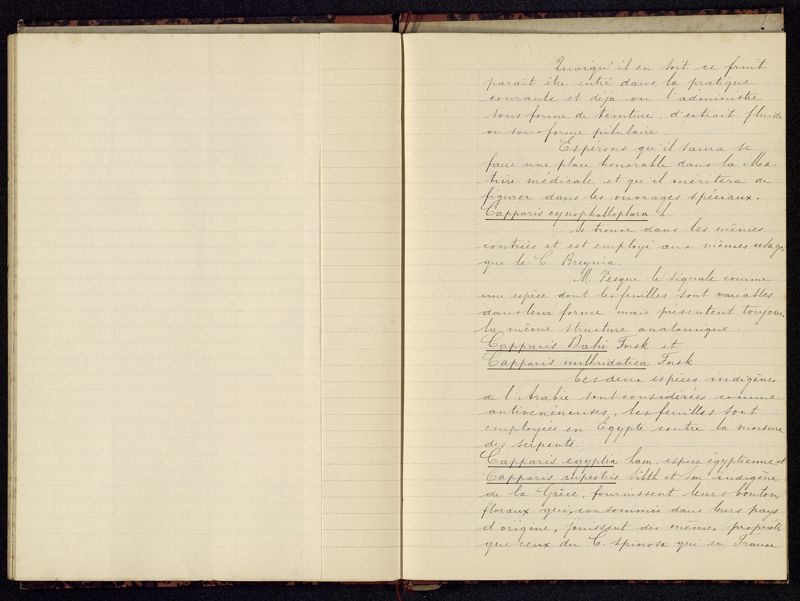 Quoiqu'il en soit ce fruit
parait être entré dans la pratique
courante et déjà on l'administre
sous forme de teinture, d'extrait fluide
ou sous forme pilulaire.
Espérons qu'il saura se
faire une place honorable dans la Ma-
tière médicale et qu'il méritera de
figurer dans les ouvrages spéciaux.
Capparis cynophallophora L.
Se trouve dans les mêmes
contrées et est employé aux mêmes usages
que le C Breynia.
M. Vesque le signale comme
une espèce dont les feuilles sont variables
dans leur forme mais présentent toujours
la même structure anatomique.
Capparis Dahi Forsk et
Capparis mithridatica Forsk
Ces deux espèces indigènes
de l'Arabie sont considérées comme
antivénéneuses, les feuilles sont
employées en Egypte contre la morsure
des serpents.
Capparis egyptia Lam. espèce égyptienne et
Capparis rupestris Sibth et Sm indigène
de la Grèce, fournissent leurs boutons
floraux qui, consommés dans leurs pays
d'origine, jouissent des même, propriétés
que ceux du C. spinosa qui en France